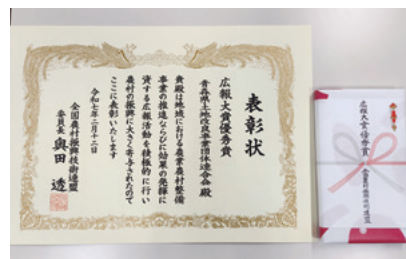 表彰状
広報大賞優秀賞
青森県土地改良事業団体連合会 殿
貴殿は地域における農業農村整備
事業の推進ならびに効果の発揮に
資する広報活動を積極的に行い
農村の振興に大きく寄与されたので
ここに表彰いたします
令和七年二月十二日
全国農村振興技術連盟
委員長 奥田 透
広報大賞優秀賞
全国農村振興技術連盟